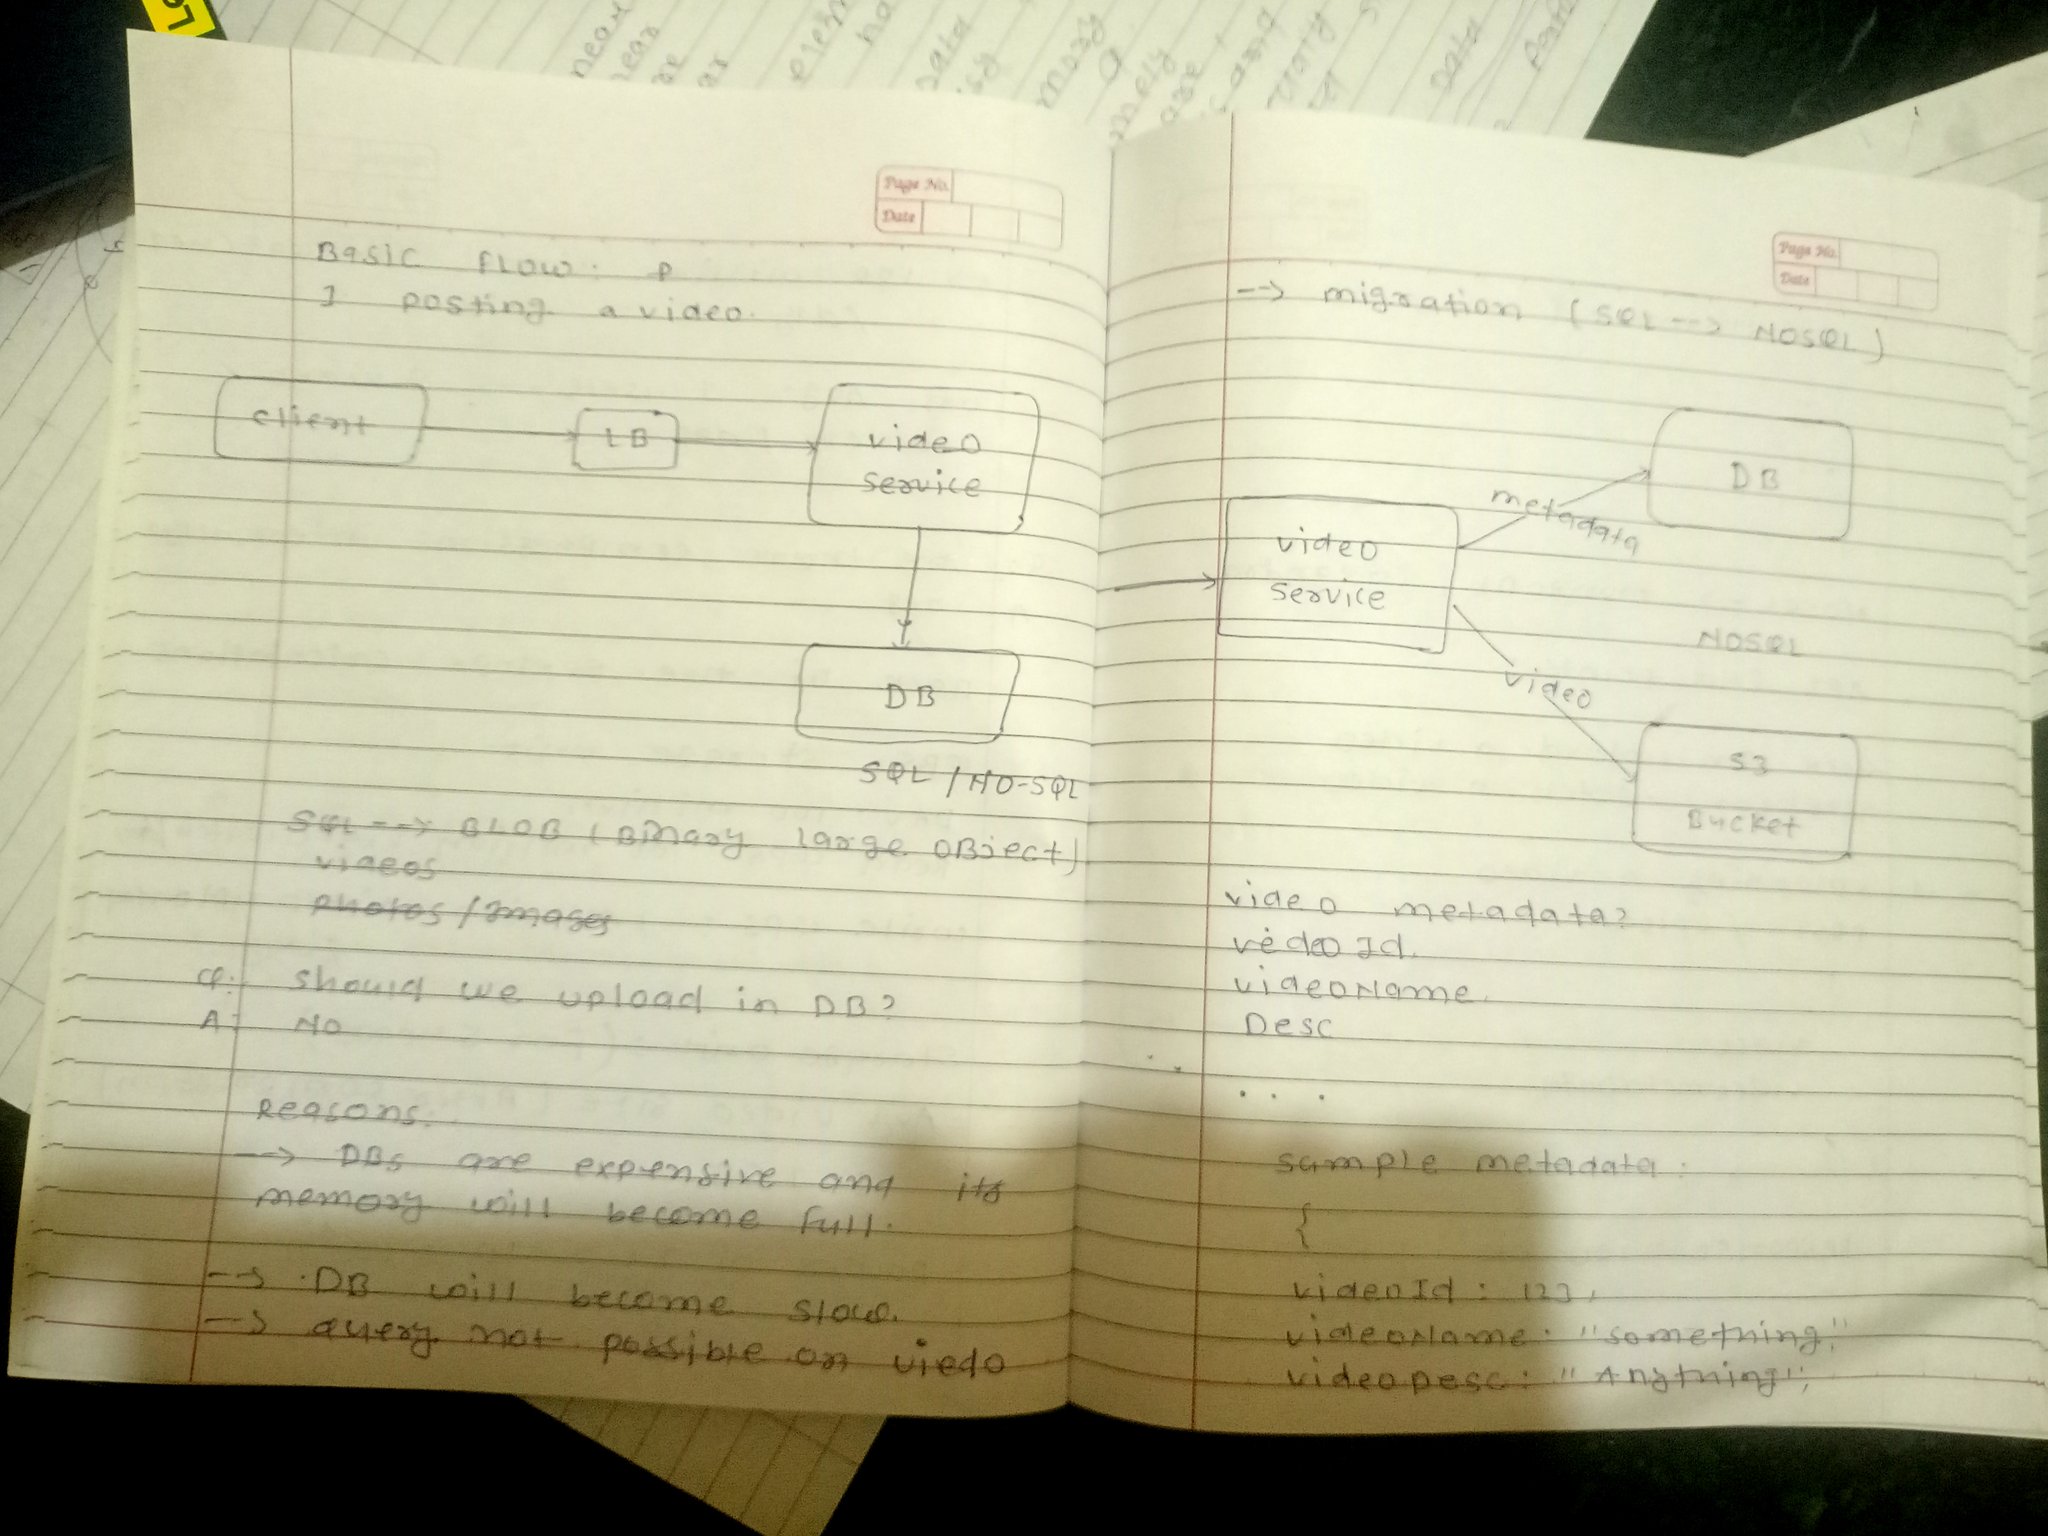 Page No.
Date
Basic Flow: P
1 posting a video.
client
LB
video
service
DB
SQL / NO-SQL
SQL --> BLOB (Binary large OBject)
videos
photos / Images
Q: should we upload in DB?
A: NO
Reasons:
--> DBs are expensive and its
memory will become full.
--> DB will become slow.
--> query not possible on viedo
Page No.
Date
--> migration (SQL --> NOSQL)
DB
metadata
video
service
NOSQL
video
S3
Bucket
video metadata?
vedeo Id.
videoName.
Desc
. . .
sample metadata:
{
videoId : 123,
videoName: "something",
videoDesc: "Anything",